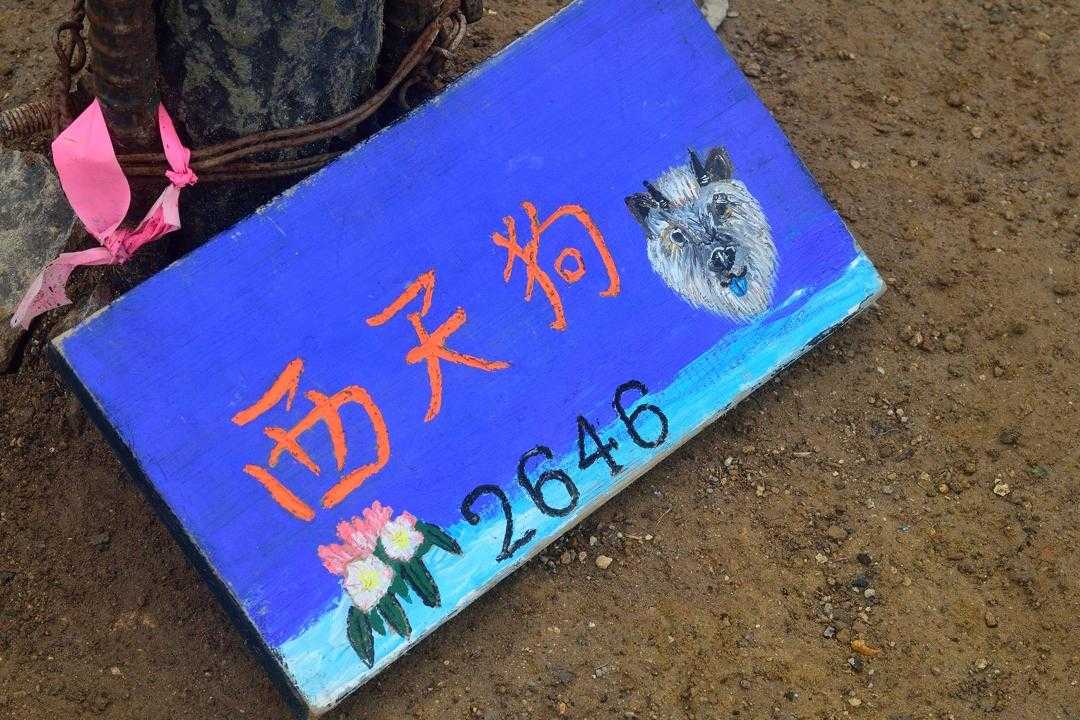 西天狗
2646